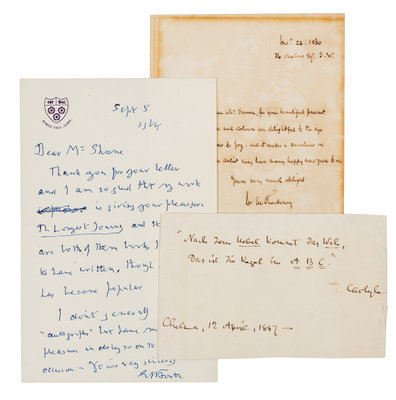 KING'S COLL. CAMB.
Sept 5
1964
Dear Mr Shone
Thank you for your letter
and I am so glad that my work
is giving you pleasure
The Longest Journey and
are both of them books I
to have written, though
has become popular
I don't generally
"autographs" but have
pleasure in doing so on
occasion — Yours very sincerely
EMForster
26 1860
36 Onslow Sq. S.W.
for your beautiful present.
and colours are delightful to the eye
and it makes a sunshine in
artist may have many happy new years to
Yours very much obliged
W M Thackeray
"Nach dem Nebel kommt das Weh,
Das ist die Regel im A B C."
T. Carlyle
Chelsea, 12 April, 1847—